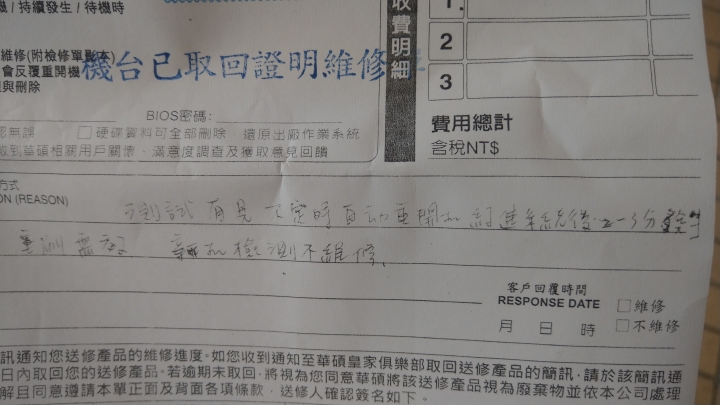 / 持續發生 / 待機時
收費明細
1.
維修(附檢修單製本)
2
會反覆重開機
機台已取回證明維修
與刪除
3
BIOS密碼:
認無誤
□硬碟資料可全部刪除、還原出廠作業系統
到華碩相關用戶關懷、滿意度調查及獲取意見回饋
費用總計
含稅NT$
方式
ON (REASON)
測試有見不定時自動重開機 約進系統後 分發生
重測無 檢測不維修
客戶回覆時間
RESPONSE DATE
□維修
月 日 時
□不維修
訊通知您送修產品的維修進度。如您收到通知至華碩皇家俱樂部取回送修產品的簡訊,請於該簡訊通
日內取回您的送修產品。若逾期未取回,將視為您同意華碩將該送修產品視為廢棄物並依本公司處理
解且同意遵請本單正面及背面各項條款,送修人確認簽名如下。